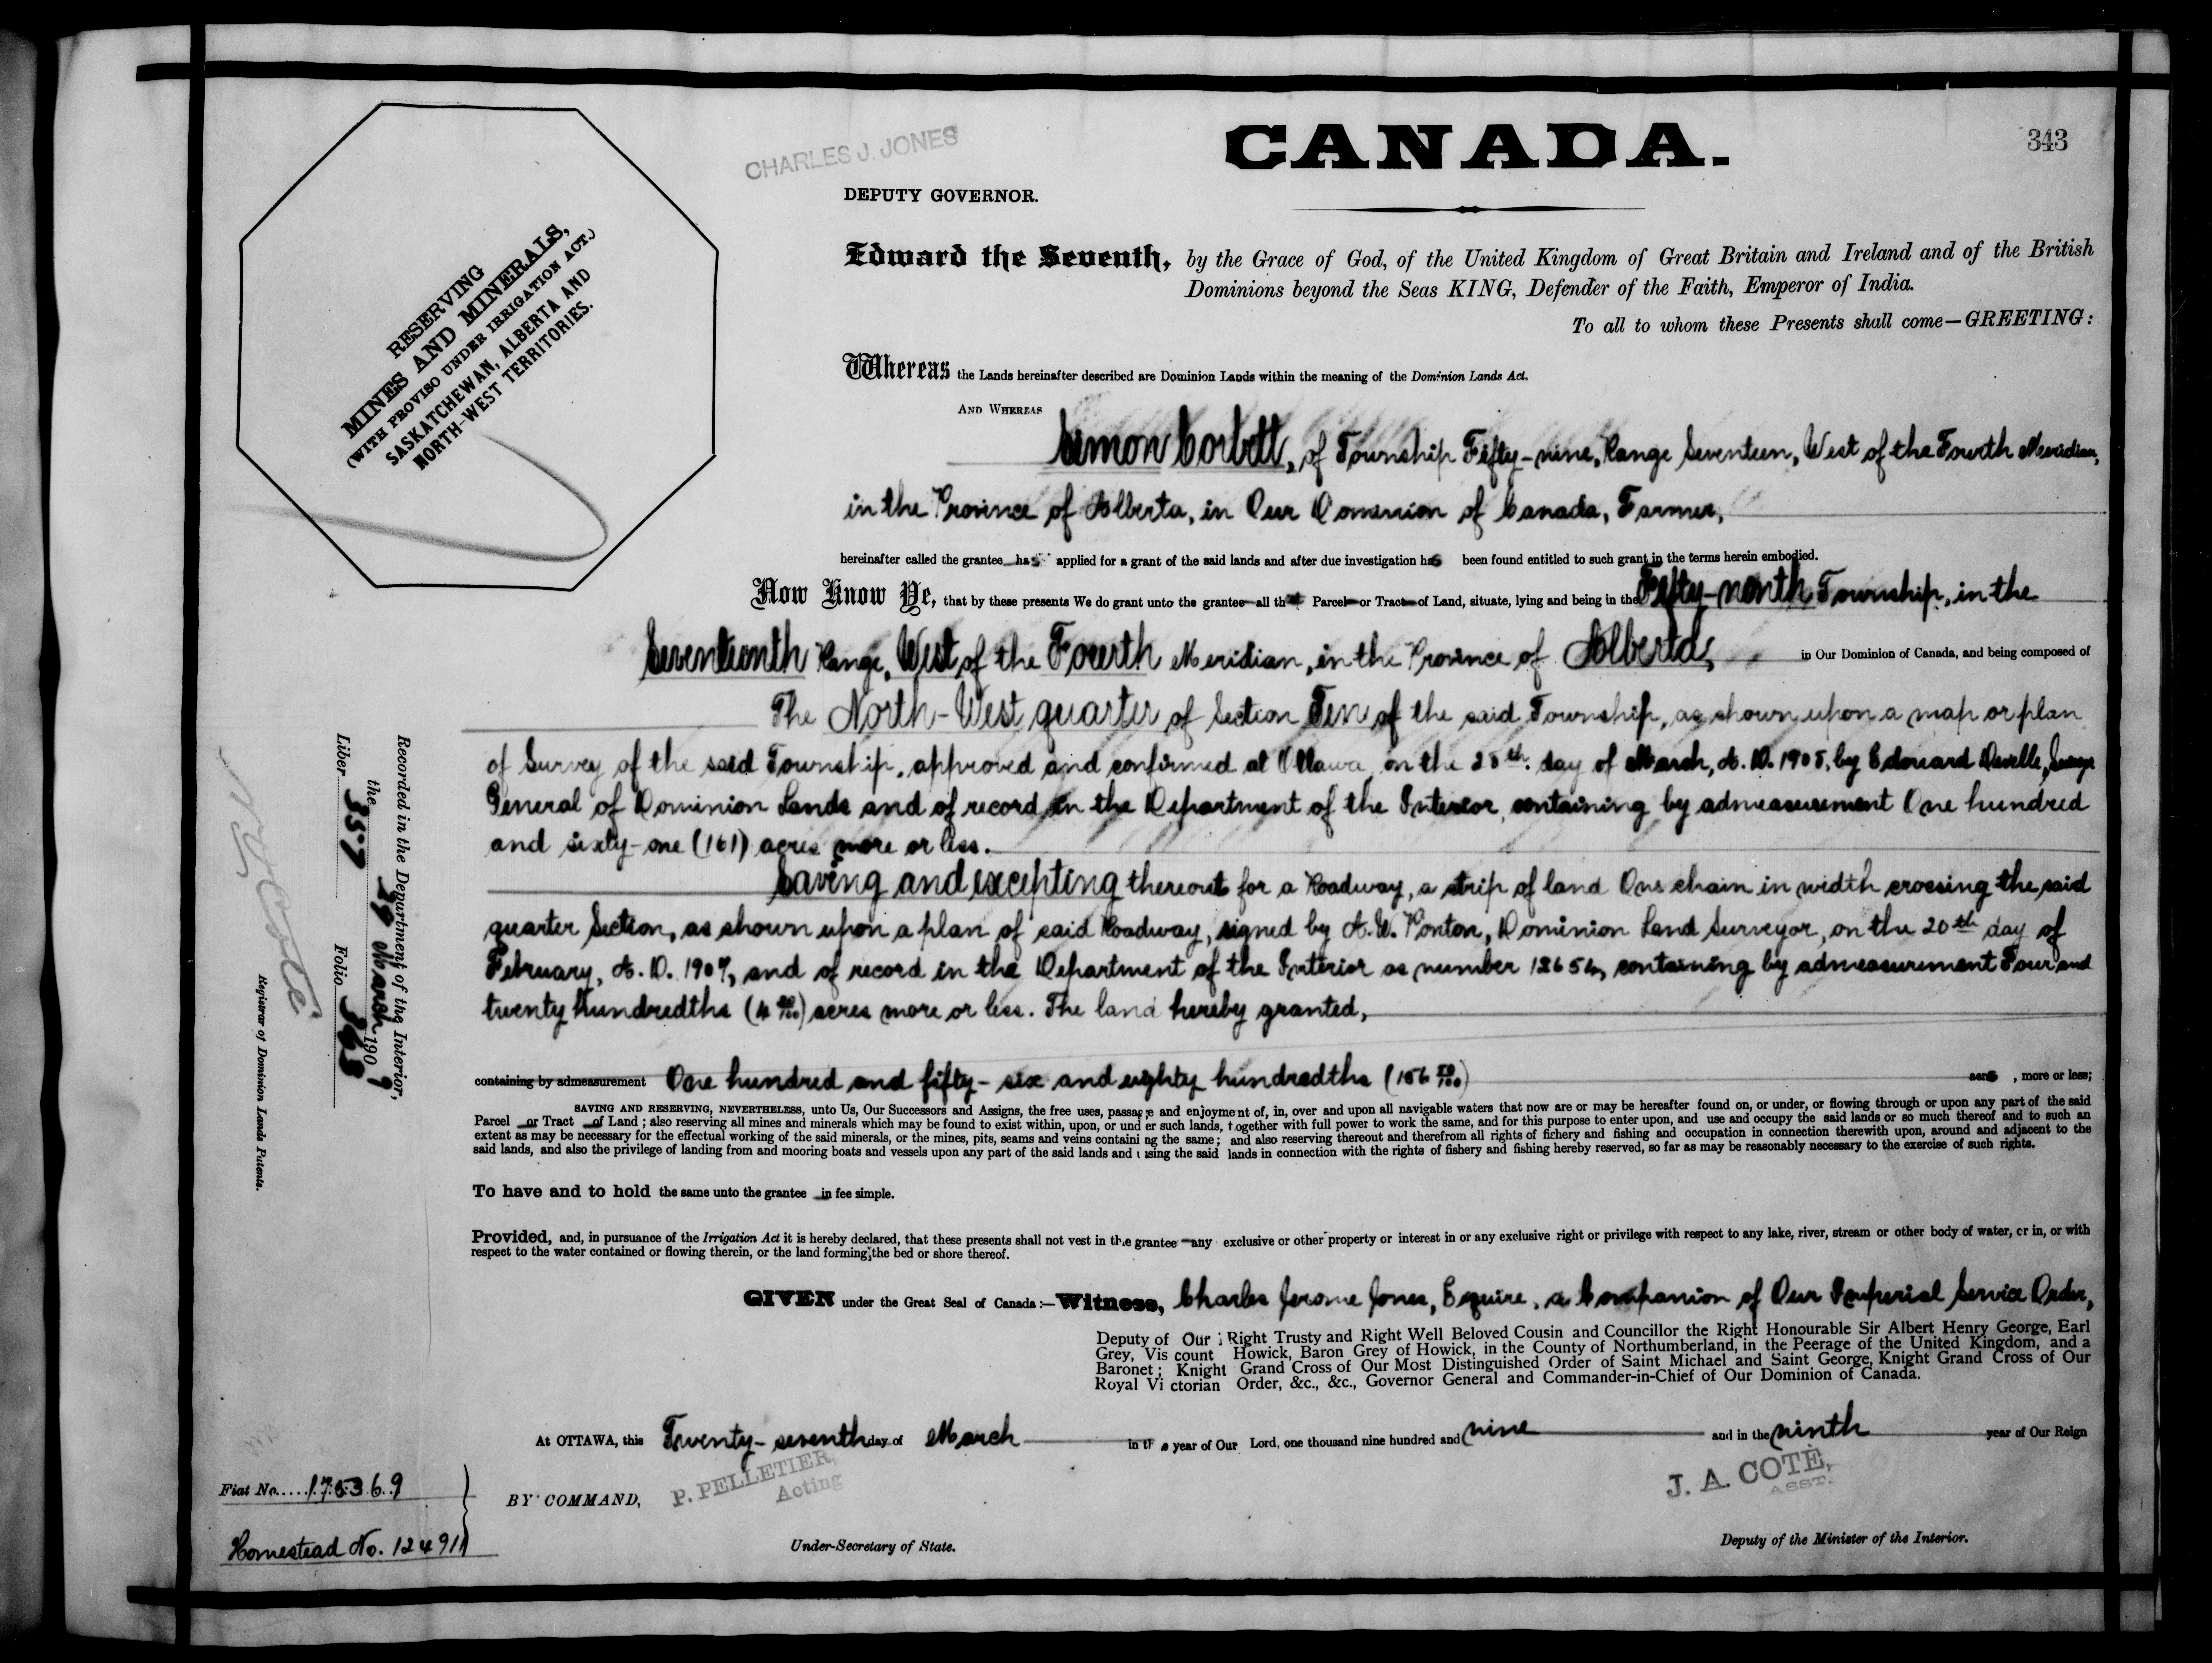 343
CHARLES J. JONES
CANADA.
DEPUTY GOVERNOR.
RESERVING
MINES AND MINERALS,
(WITH PROVISO UNDER IRRIGATION ACT.)
SASKATCHEWAN, ALBERTA AND
NORTH-WEST TERRITORIES.
Edward the Seventh, by the Grace of God, of the United Kingdom of Great Britain and Ireland and of the British
Dominions beyond the Seas KING, Defender of the Faith, Emperor of India.
To all to whom these Presents shall come—GREETING:
Whereas the Lands hereinafter described are Dominion Lands within the meaning of the Dominion Lands Act.
AND WHEREAS
Simon Corbett, of Township Fifty-nine, Range Seventeen, West of the Fourth Meridian,
in the Province of Alberta, in Our Dominion of Canada, Farmer,
hereinafter called the grantee has applied for a grant of the said lands and after due investigation has been found entitled to such grant in the terms herein embodied.
Now Know Ye, that by these presents We do grant unto the grantee all that Parcel or Tract of Land, situate, lying and being in the Fifty-ninth Township, in the
Seventeenth Range, West of the Fourth Meridian, in the Province of Alberta, in Our Dominion of Canada, and being composed of
The North-West quarter of Section Ten of the said Township, as shown upon a map or plan
of Survey of the said Township, approved and confirmed at Ottawa, on the 28th. day of March, A. D. 1905, by Edouard Deville, Surveyor
General of Dominion Lands and of record in the Department of the Interior, containing by admeasurement One hundred
and sixty-one (161) acres more or less.
Saving and excepting thereout for a Roadway, a strip of land One chain in width crossing the said
quarter Section, as shown upon a plan of said Roadway, signed by A. W. Ponton, Dominion Land Surveyor, on the 20th day of
February, A. D. 1907, and of record in the Department of the Interior as number 12654, containing by admeasurement Four and
twenty hundredths (4 20/100) acres more or less. The land hereby granted,
containing by admeasurement One hundred and fifty-six and eighty hundredths (156 80/100) acres, more or less;
SAVING AND RESERVING, NEVERTHELESS, unto Us, Our Successors and Assigns, the free uses, passage and enjoyment of, in, over and upon all navigable waters that now are or may be hereafter found on, or under, or flowing through or upon any part of the said
Parcel or Tract of Land; also reserving all mines and minerals which may be found to exist within, upon, or under such lands, together with full power to work the same, and for this purpose to enter upon, and use and occupy the said lands or so much thereof and to such an
extent as may be necessary for the effectual working of the said minerals, or the mines, pits, seams and veins containing the same; and also reserving thereout and therefrom all rights of fichery and fishing and occupation in connection therewith upon, around and adjacent to the
said lands, and also the privilege of landing from and mooring boats and vessels upon any part of the said lands and using the said lands in connection with the rights of fishery and fishing hereby reserved, so far as may be reasonably necessary to the exercise of such rights.
To have and to hold the same unto the grantee in fee simple.
Provided, and, in pursuance of the Irrigation Act it is hereby declared, that these presents shall not vest in the grantee any exclusive or other property or interest in or any exclusive right or privilege with respect to any lake, river, stream or other body of water, or in, or with
respect to the water contained or flowing therein, or the land forming the bed or shore thereof.
GIVEN under the Great Seal of Canada:—Witness, Charles Jerome Jones, Esquire, a Companion of Our Imperial Service Order,
Deputy of Our Right Trusty and Right Well Beloved Cousin and Councillor the Right Honourable Sir Albert Henry George, Earl
Grey, Viscount Howick, Baron Grey of Howick, in the County of Northumberland, in the Peerage of the United Kingdom, and a
Baronet; Knight Grand Cross of Our Most Distinguished Order of Saint Michael and Saint George, Knight Grand Cross of Our
Royal Victorian Order, &c., &c., Governor General and Commander-in-Chief of Our Dominion of Canada.
At OTTAWA, this Twenty-seventh day of March in the year of Our Lord, one thousand nine hundred and nine and in the ninth year of Our Reign
P. PELLETIER,
Acting
BY COMMAND,
Under-Secretary of State.
J. A. COTÉ,
ASST.
Deputy of the Minister of the Interior.
Recorded in the Department of the Interior,
the 29 March 1909
Liber 357 Folio 343
N. O. Coté
Registrar of Dominion Lands Patents.
Fiat No. 175369
Homestead No. 124911